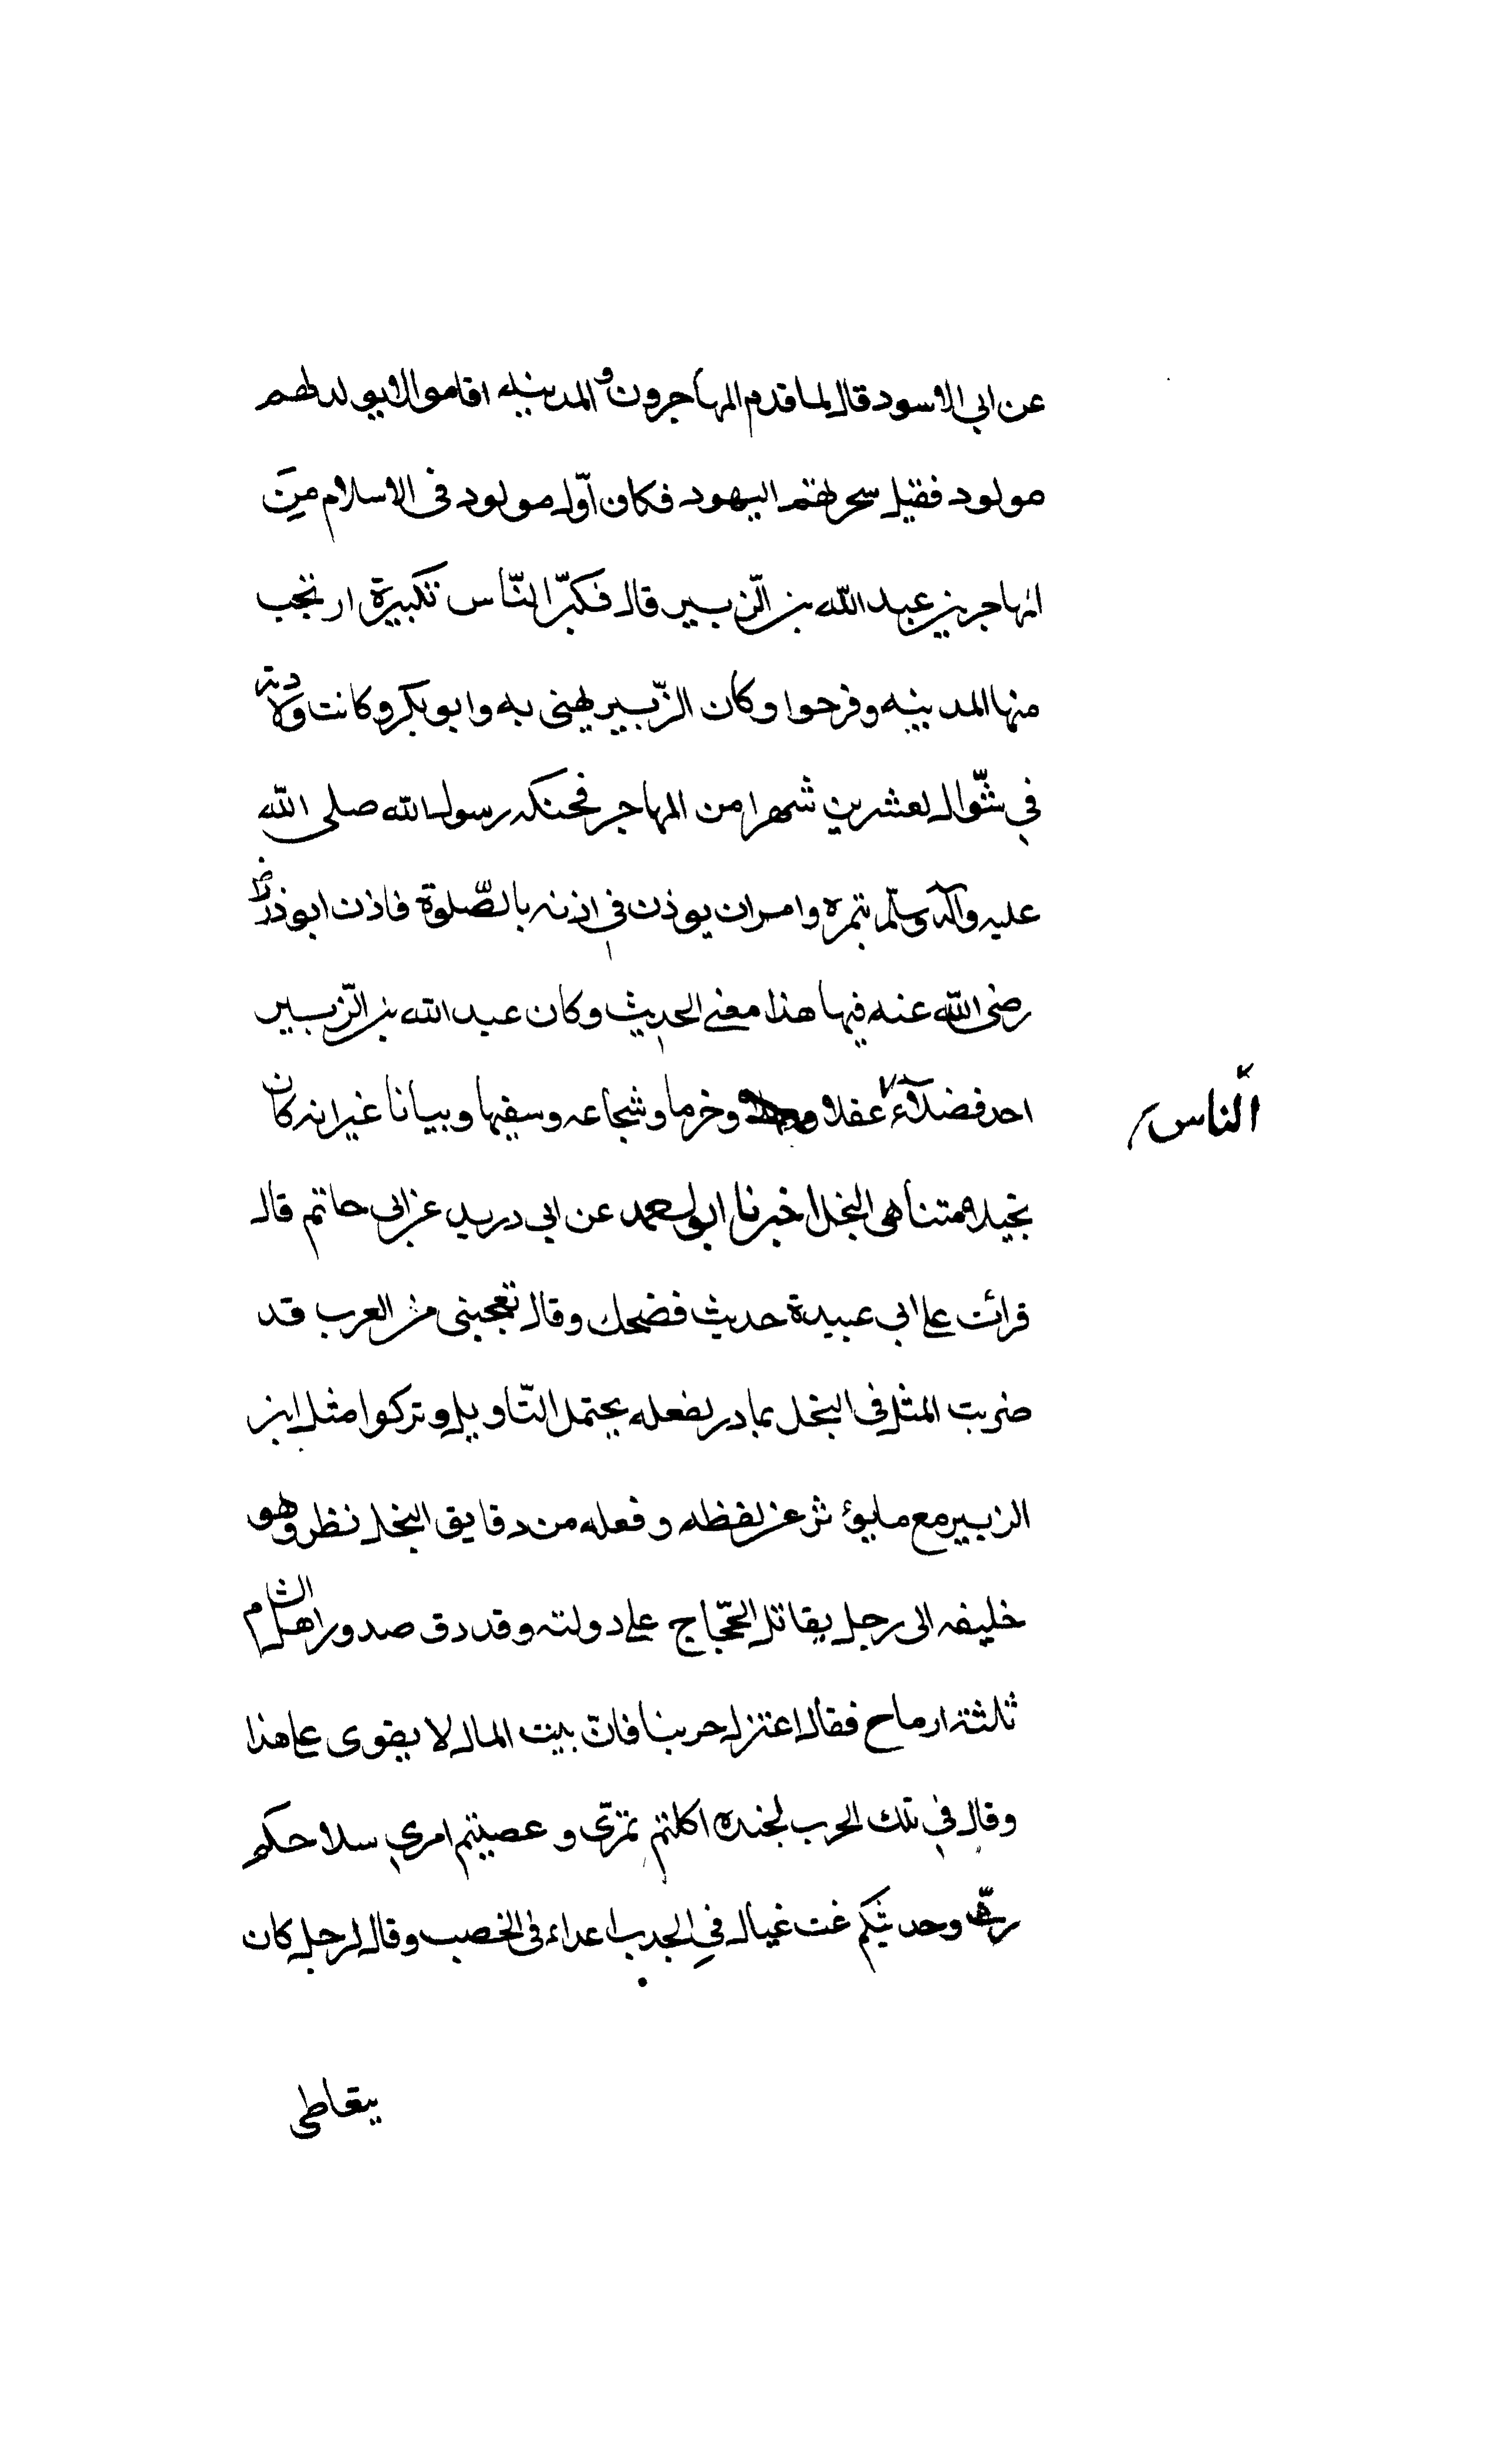 عن ابى الاسود قال لما قدم المهاجرون و المدينه اقاموا لا يولد لهم
مولود فقيل سحرتهم اليهود فكان اوّل مولود فى الاسلام من
المهاجرين عبد الله بن الزّبير قال فكبّر النّاس تكبيرة ارتجب
منها المدينه وفرحوا وكان الزّبير يهنى به وابو بكر وكانت ولادته
في شوّال لعشرين شهرا من المهاجر فحنكه رسول الله صلى الله
عليه وآله وسلّم بتمره وامر ان يوذن في اذنه بالصّلوة فاذن ابوذر
رضى الله عنه فيها هذا معنى الحديث وكان عبد الله بن الزّبير
احد فضلآء عقلا وخرما وشجاعه وسفيها وبيانا غير انه كان
النّاس
بخيلا متناهى البخل اخبرنا ابو احمد عن ابى دريد عن ابى حاتم قال
قرائت على ابى عبيدة حديث فضحك وقال تعجبنى من العرب قد
ضربت المثل فى البخل بمادر لفعله يحتمل التّاويل وتركوا مثل ابن
الزبير مع ما يوثر عن لفظه وفعله من دقايق البخل نظر وهو
خليفه الى رجل يقاتل الحجّاج على دولته وقد دق صدور اهل الشام
ثالثة ارماح فقال اعتزل حربنا فانّ بيت المال لا يقوى على هذا
وقال في تلك الحرب لجنده اكلتم تمرّى و عصيتم امري سلاحكم
رثّ وحديثكم غث عيال فى الجدب اعداء فى الخصب وقال لرجل كان
يتعاطى